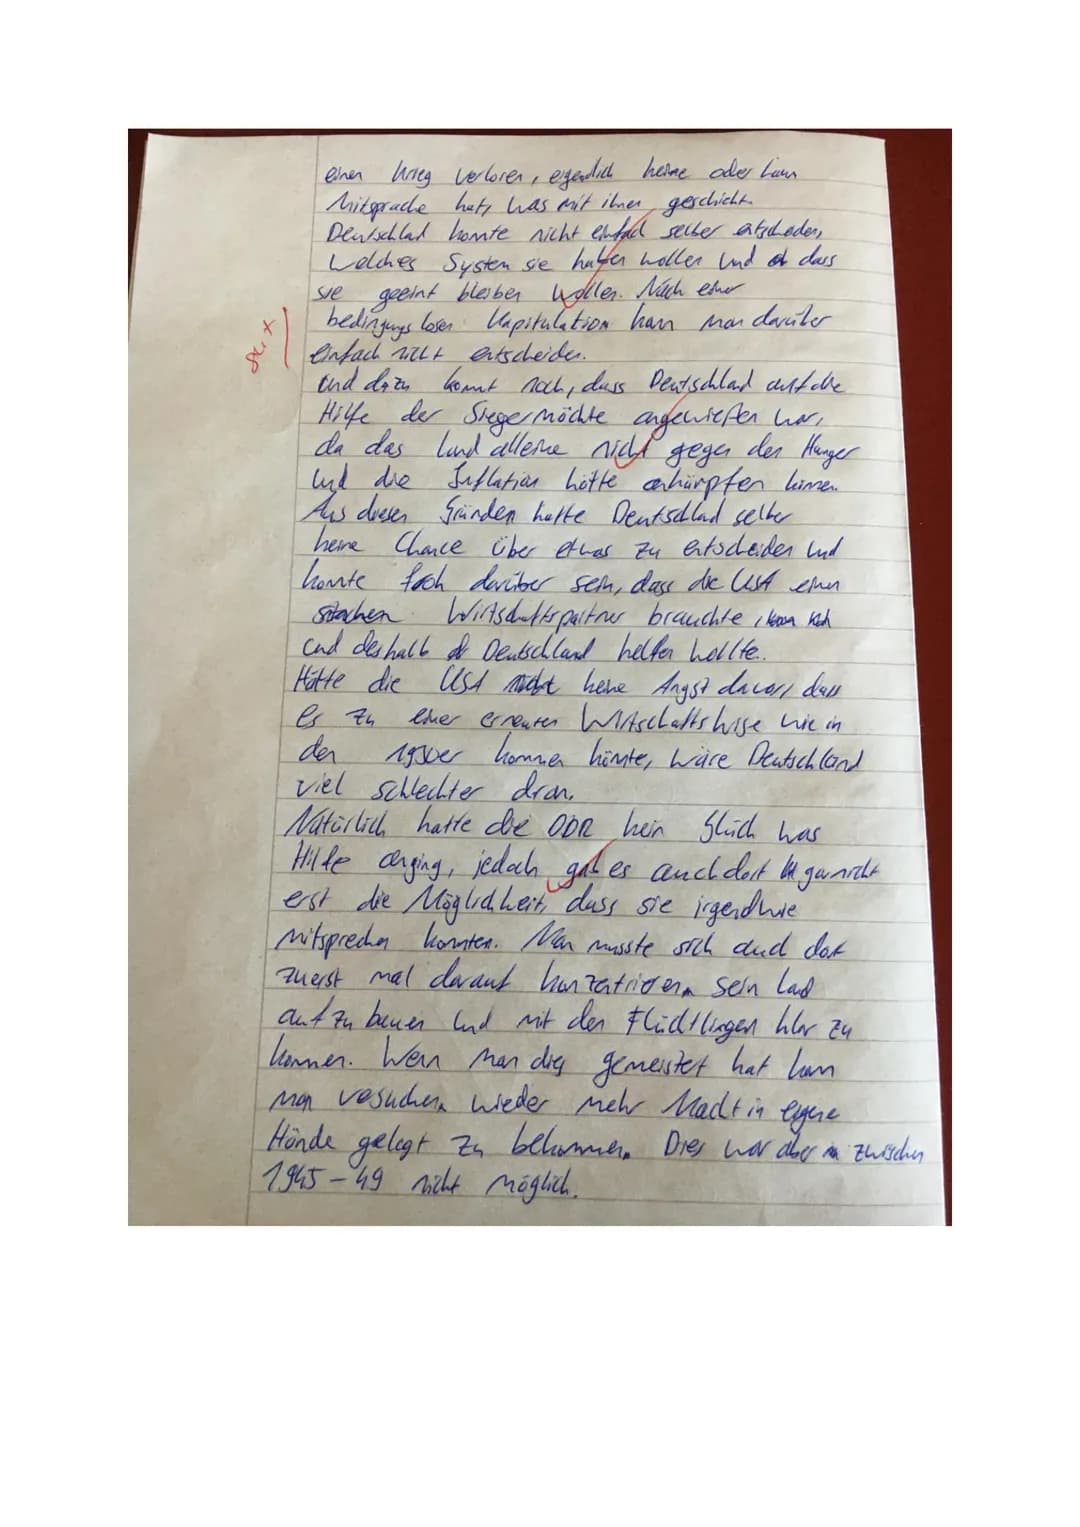 einen Krieg verloren, eigendlich keine oder kaum
Mitsprache hat, was mit ihnen geschieht.
Deutschland konnte nicht einfach selber entscheiden,
welches System sie haben wollen und dass
sie geeint bleiben wollen. Nach einer
bedingungslosen Kapitulation kann man darüber
einfach nicht entscheiden.
Und dazu kommt noch, dass Deutschland auf die
Hilfe der Siegermächte angewiesen war,
da das Land alleine nicht gegen den Hunger
und die Inflation hätte ankämpfen können.
Aus diesen Gründen hatte Deutschland selber
keine Chance über etwas zu entscheiden und
konnte froh darüber sein, dass die USA einen
Wirtschaftspartner brauchte,
und deshalb Deutschland helfen wollte.
Hätte die USA keine Angst davor, dass
es zu einer erneuten Wirtschaftskrise wie in
den 1930er kommen könnte, wäre Deutschland
viel schlechter dran.
Natürlich hatte die DDR kein Glück was
Hilfe anging, jedoch gab es auch dort garnicht
erst die Möglichkeit, dass sie irgendwie
mitsprechen konnten. Man musste sich auch dort
zuerst mal darauf konzentrieren sein Land
aufzubauen und mit den Flüchtlingen klar zu
kommen. Wenn man dies gemeistert hat kann
man versuchen wieder mehr Macht in eigene
Hände gelegt zu bekommen. Dies war aber zwischen
1945-49 nicht möglich.